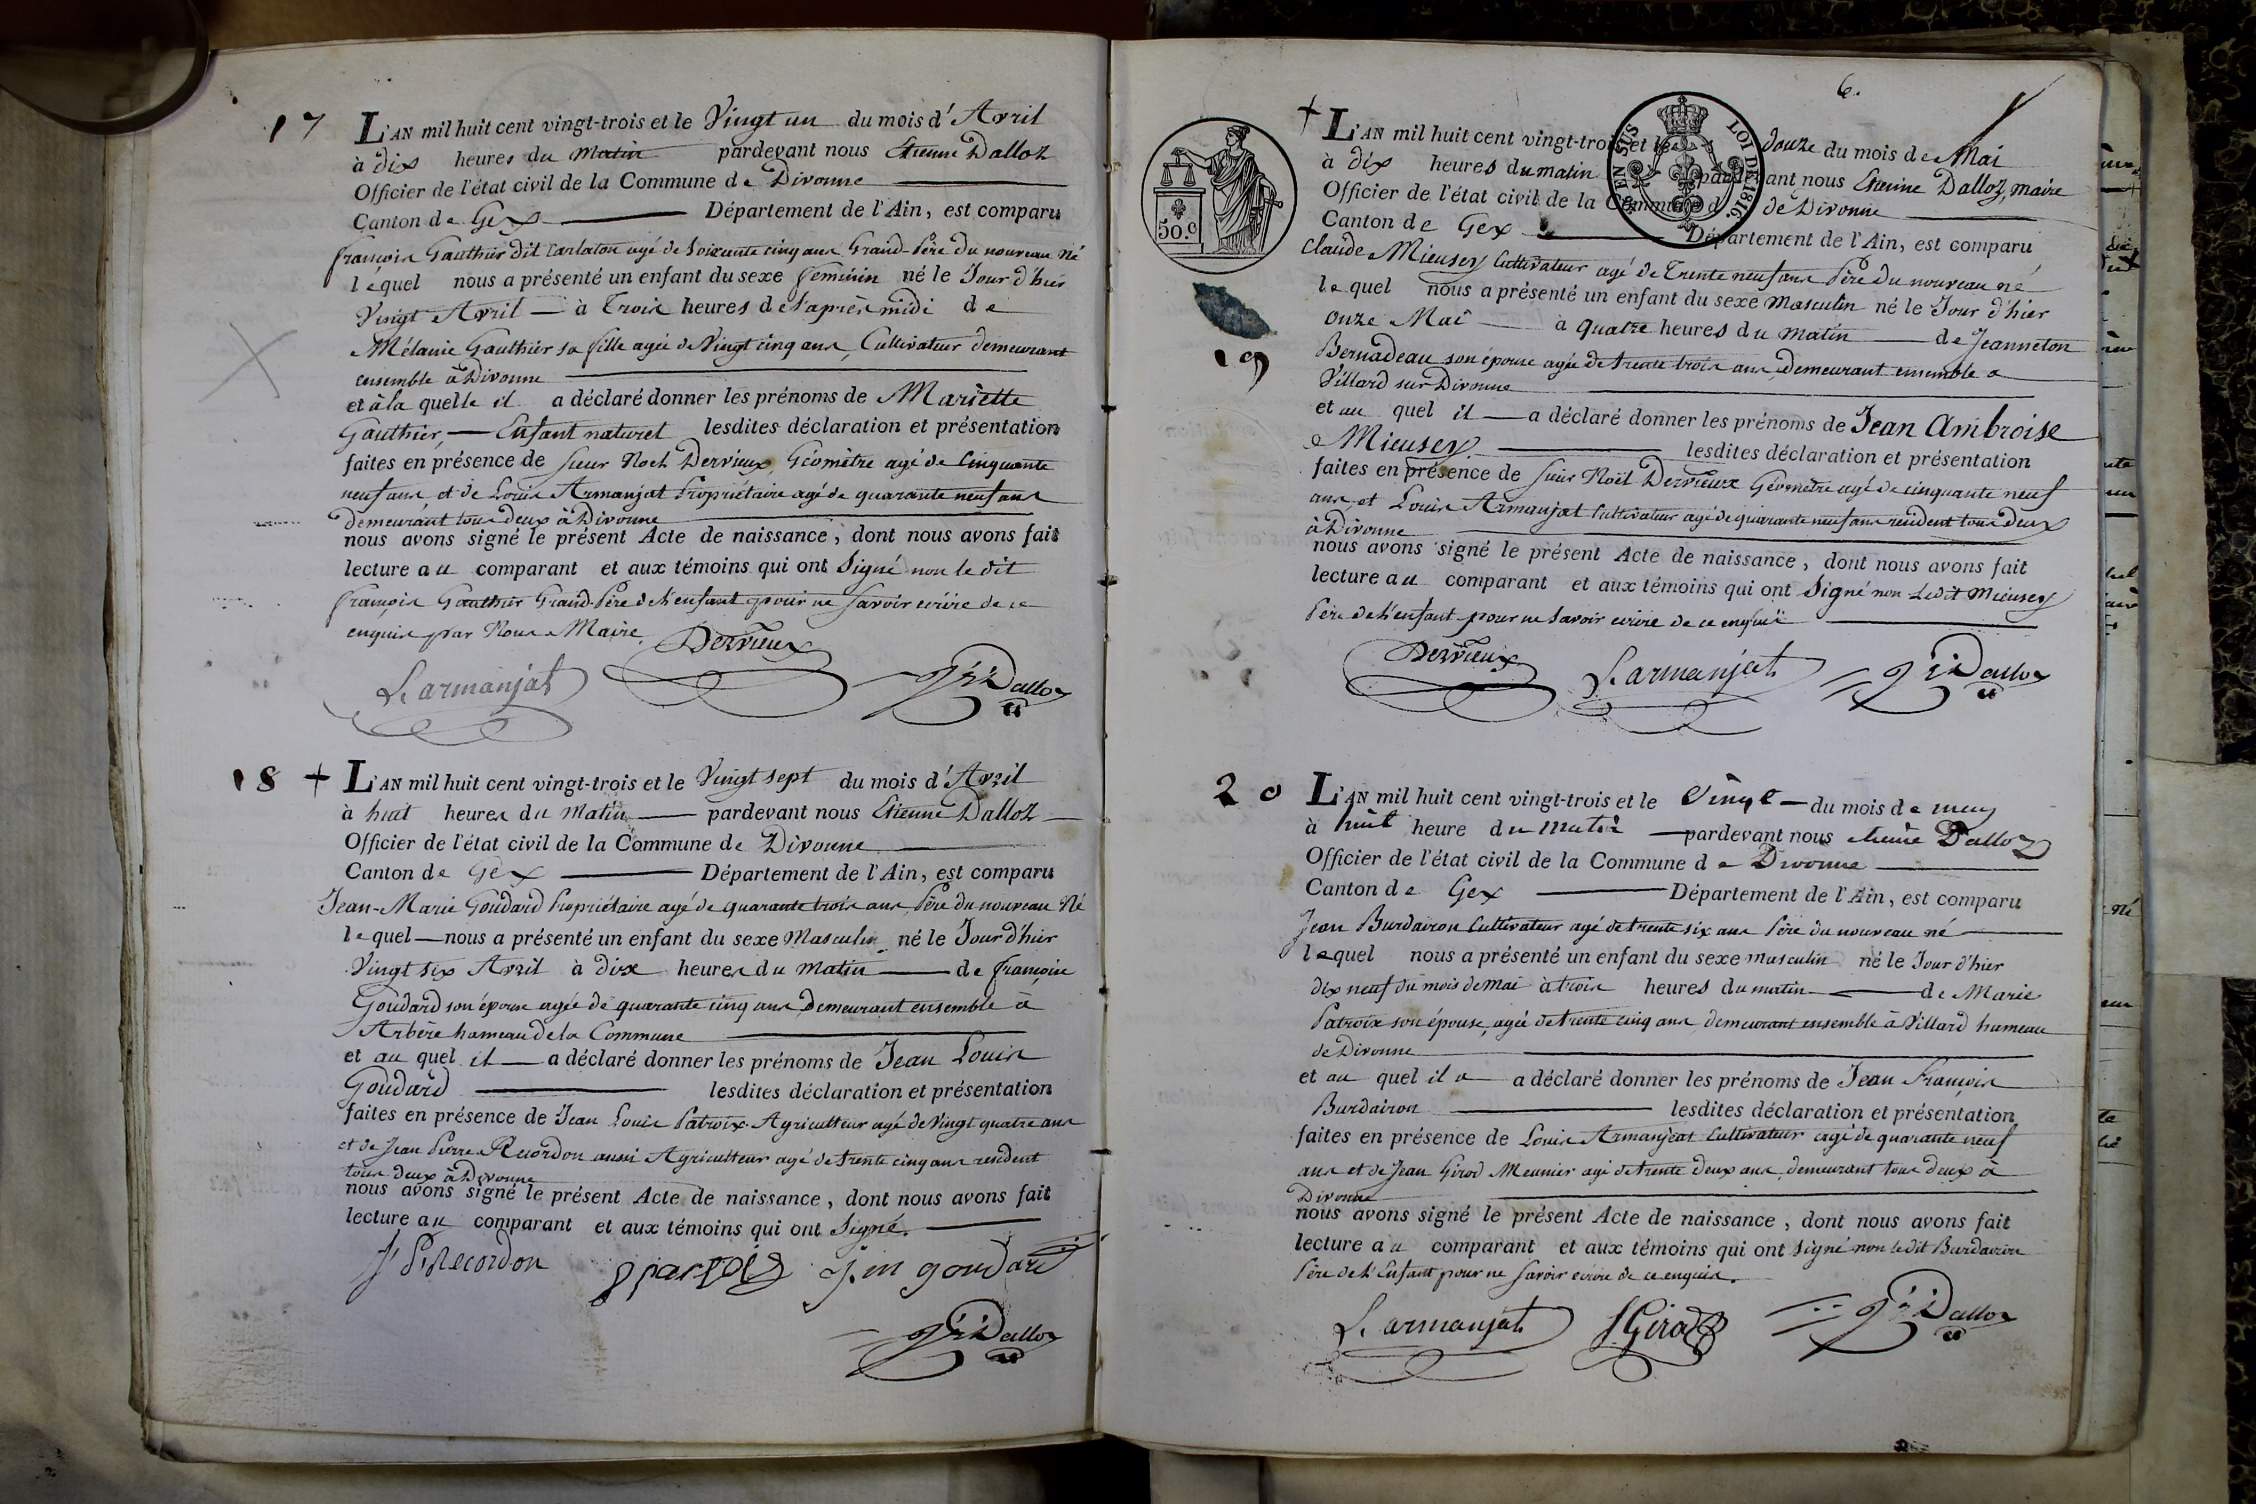 17
L'AN mil huit cent vingt-trois et le Vingt un du mois d'Avril
à dix heures du Matin pardevant nous Etienne Dalloz
Officier de l'état civil de la Commune de Divonne
Canton de Gex Département de l'Ain, est comparu
françois Gauthier dit agé de Soixante cinq ans Grand-Père du nouveau Né
lequel nous a présenté un enfant du sexe feminin né le Jour d'hier
Vingt Avril à Trois heures de l'après midi de
Mélanie Gauthier sa fille agée de Vingt cinq ans, Cultivateur demeurant
ensemble à Divonne
et à la quelle il a déclaré donner les prénoms de Mariette
Gauthier, Enfant naturel lesdites déclaration et présentation
faites en présence de sieur Noel Dervieux, Géomètre agé de Cinquante
neuf ans et de Louis Armanjat Propriétaire agé de quarante neuf ans
demeurant tous deux à Divonne
nous avons signé le présent Acte de naissance, dont nous avons fait
lecture au comparant et aux témoins qui ont Signé non le dit
françois Gauthier Grand-Père de l'enfant pour ne Savoir ecrire de ce
enquis par Nous Maire.
Dervieux
L. armanjat
Dalloz
18 +
L'AN mil huit cent vingt-trois et le Vingt sept du mois d'Avril
à huit heures du Matin pardevant nous Etienne Dalloz
Officier de l'état civil de la Commune de Divonne
Canton de Gex Département de l'Ain, est comparu
Jean-Marie Goudard Propriétaire agé de quarante trois ans, Père du nouveau Né
lequel nous a présenté un enfant du sexe Masculin né le Jour d'hier
Vingt six Avril à dix heures du Matin de françoise
Goudard son épouse agée de quarante cinq ans Demeurant ensemble à
Arbère hameau de la Commune
et au quel il a déclaré donner les prénoms de Jean Louis
Goudard lesdites déclaration et présentation
faites en présence de Jean Louis Patroix Agriculteur agé de Vingt quatre ans
et de Jean Pierre Recordon aussi Agriculteur agé de trente cinq ans resident
tous deux à Divonne
nous avons signé le présent Acte de naissance, dont nous avons fait
lecture au comparant et aux témoins qui ont Signé.
J P Recordon
goudard
Dalloz
6.
50.c
EN SUS LOI DE 1816.
+
L'AN mil huit cent vingt-trois et le douze du mois de Mai
à dix heures du matin pardevant nous Etienne Dalloz, maire
Officier de l'état civil de la Commune de Divonne
Canton de Gex Département de l'Ain, est comparu
Claude Mieusey Cultivateur agé de Trente neuf ans Père du nouveau né
lequel nous a présenté un enfant du sexe Masculin né le Jour d'hier
onze Mai à quatre heures du matin de Jeanneton
19
Bernadeau son épouse agée de trente trois ans, demeurant ensemble a
Villard sur Divonne
et au quel il a déclaré donner les prénoms de Jean Ambroise
Mieusey. lesdites déclaration et présentation
faites en présence de Sieur Noël Dervieux Géometre agé de cinquante neuf
ans, et Louis Armanjat Cultivateur agé de quarante neuf ans resident tous deux
à Divonne
nous avons signé le présent Acte de naissance, dont nous avons fait
lecture au comparant et aux témoins qui ont Signé non Ledit Mieusey
Père de l'enfant pour ne Savoir ecrire de ce enquis
Dervieux
L. armanjat
Dalloz
20
L'AN mil huit cent vingt-trois et le Vingt du mois de mey
à huit heure du Matin pardevant nous Dalloz
Officier de l'état civil de la Commune de Divonne
Canton de Gex Département de l'Ain, est comparu
Jean Burdairon Cultivateur agé de trente six ans Père du nouveau né
lequel nous a présenté un enfant du sexe masculin né le Jour d'hier
dix neuf du mois de Mai à trois heures du matin de Marie
Patroix son épouse, agée de trente cinq ans, demeurant ensemble à Villard hameau
de Divonne
et au quel il a a déclaré donner les prénoms de Jean François
Burdairon lesdites déclaration et présentation
faites en présence de Louis Armanjat Cultivateur agé de quarante neuf
ans et de Jean Girod Meunier agé de trente deux ans, demeurant tous deux à
Divonne
nous avons signé le présent Acte de naissance, dont nous avons fait
lecture au comparant et aux témoins qui ont Signé non ledit Burdairon
Père de l'Enfant pour ne Savoir ecrire de ce enquis.
L. armanjat
Girod
Dalloz